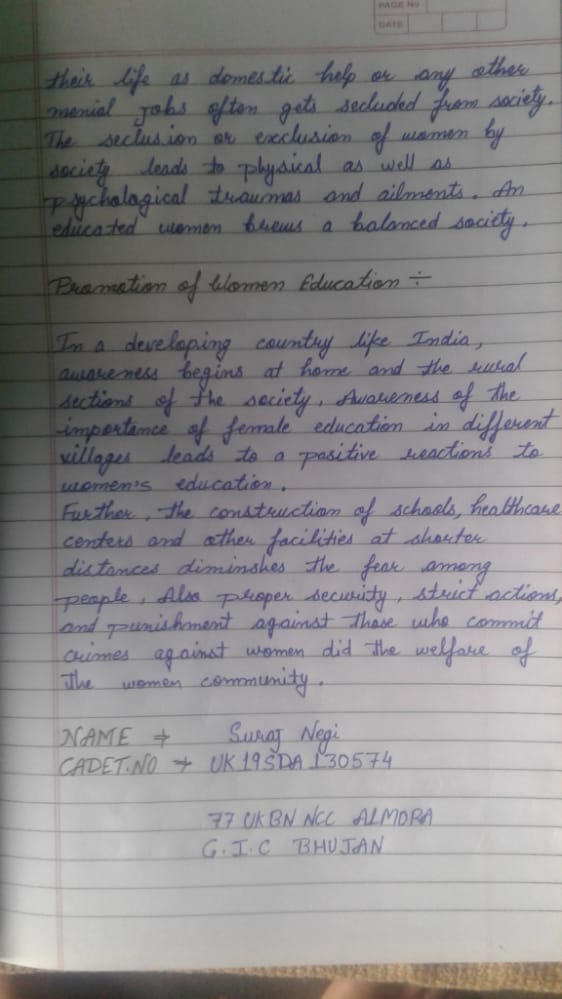 PAGE No
DATE
their life as domestic help or any other
menial jobs often gets secluded from society.
The seclusion or exclusion of women by
society leads to physical as well as
psychological traumas and ailments. An
educated women brews a balanced society.
Promotion of Women Education ÷
In a developing country like India,
awareness begins at home and the rural
sections of the society, Awareness of the
importance of female education in different
villages leads to a positive reactions to
women's education.
Further, the construction of schools, healthcare
centers and other facilities at shorter
distances diminshes the fear among
people, Also proper security, strict actions,
and punishment against those who commit
crimes against women did the welfare of
the women community.
NAME → Suraj Negi
CADET.NO → UK19SDA130574
77 UKBN NCC ALMORA
G.I.C BHUJAN